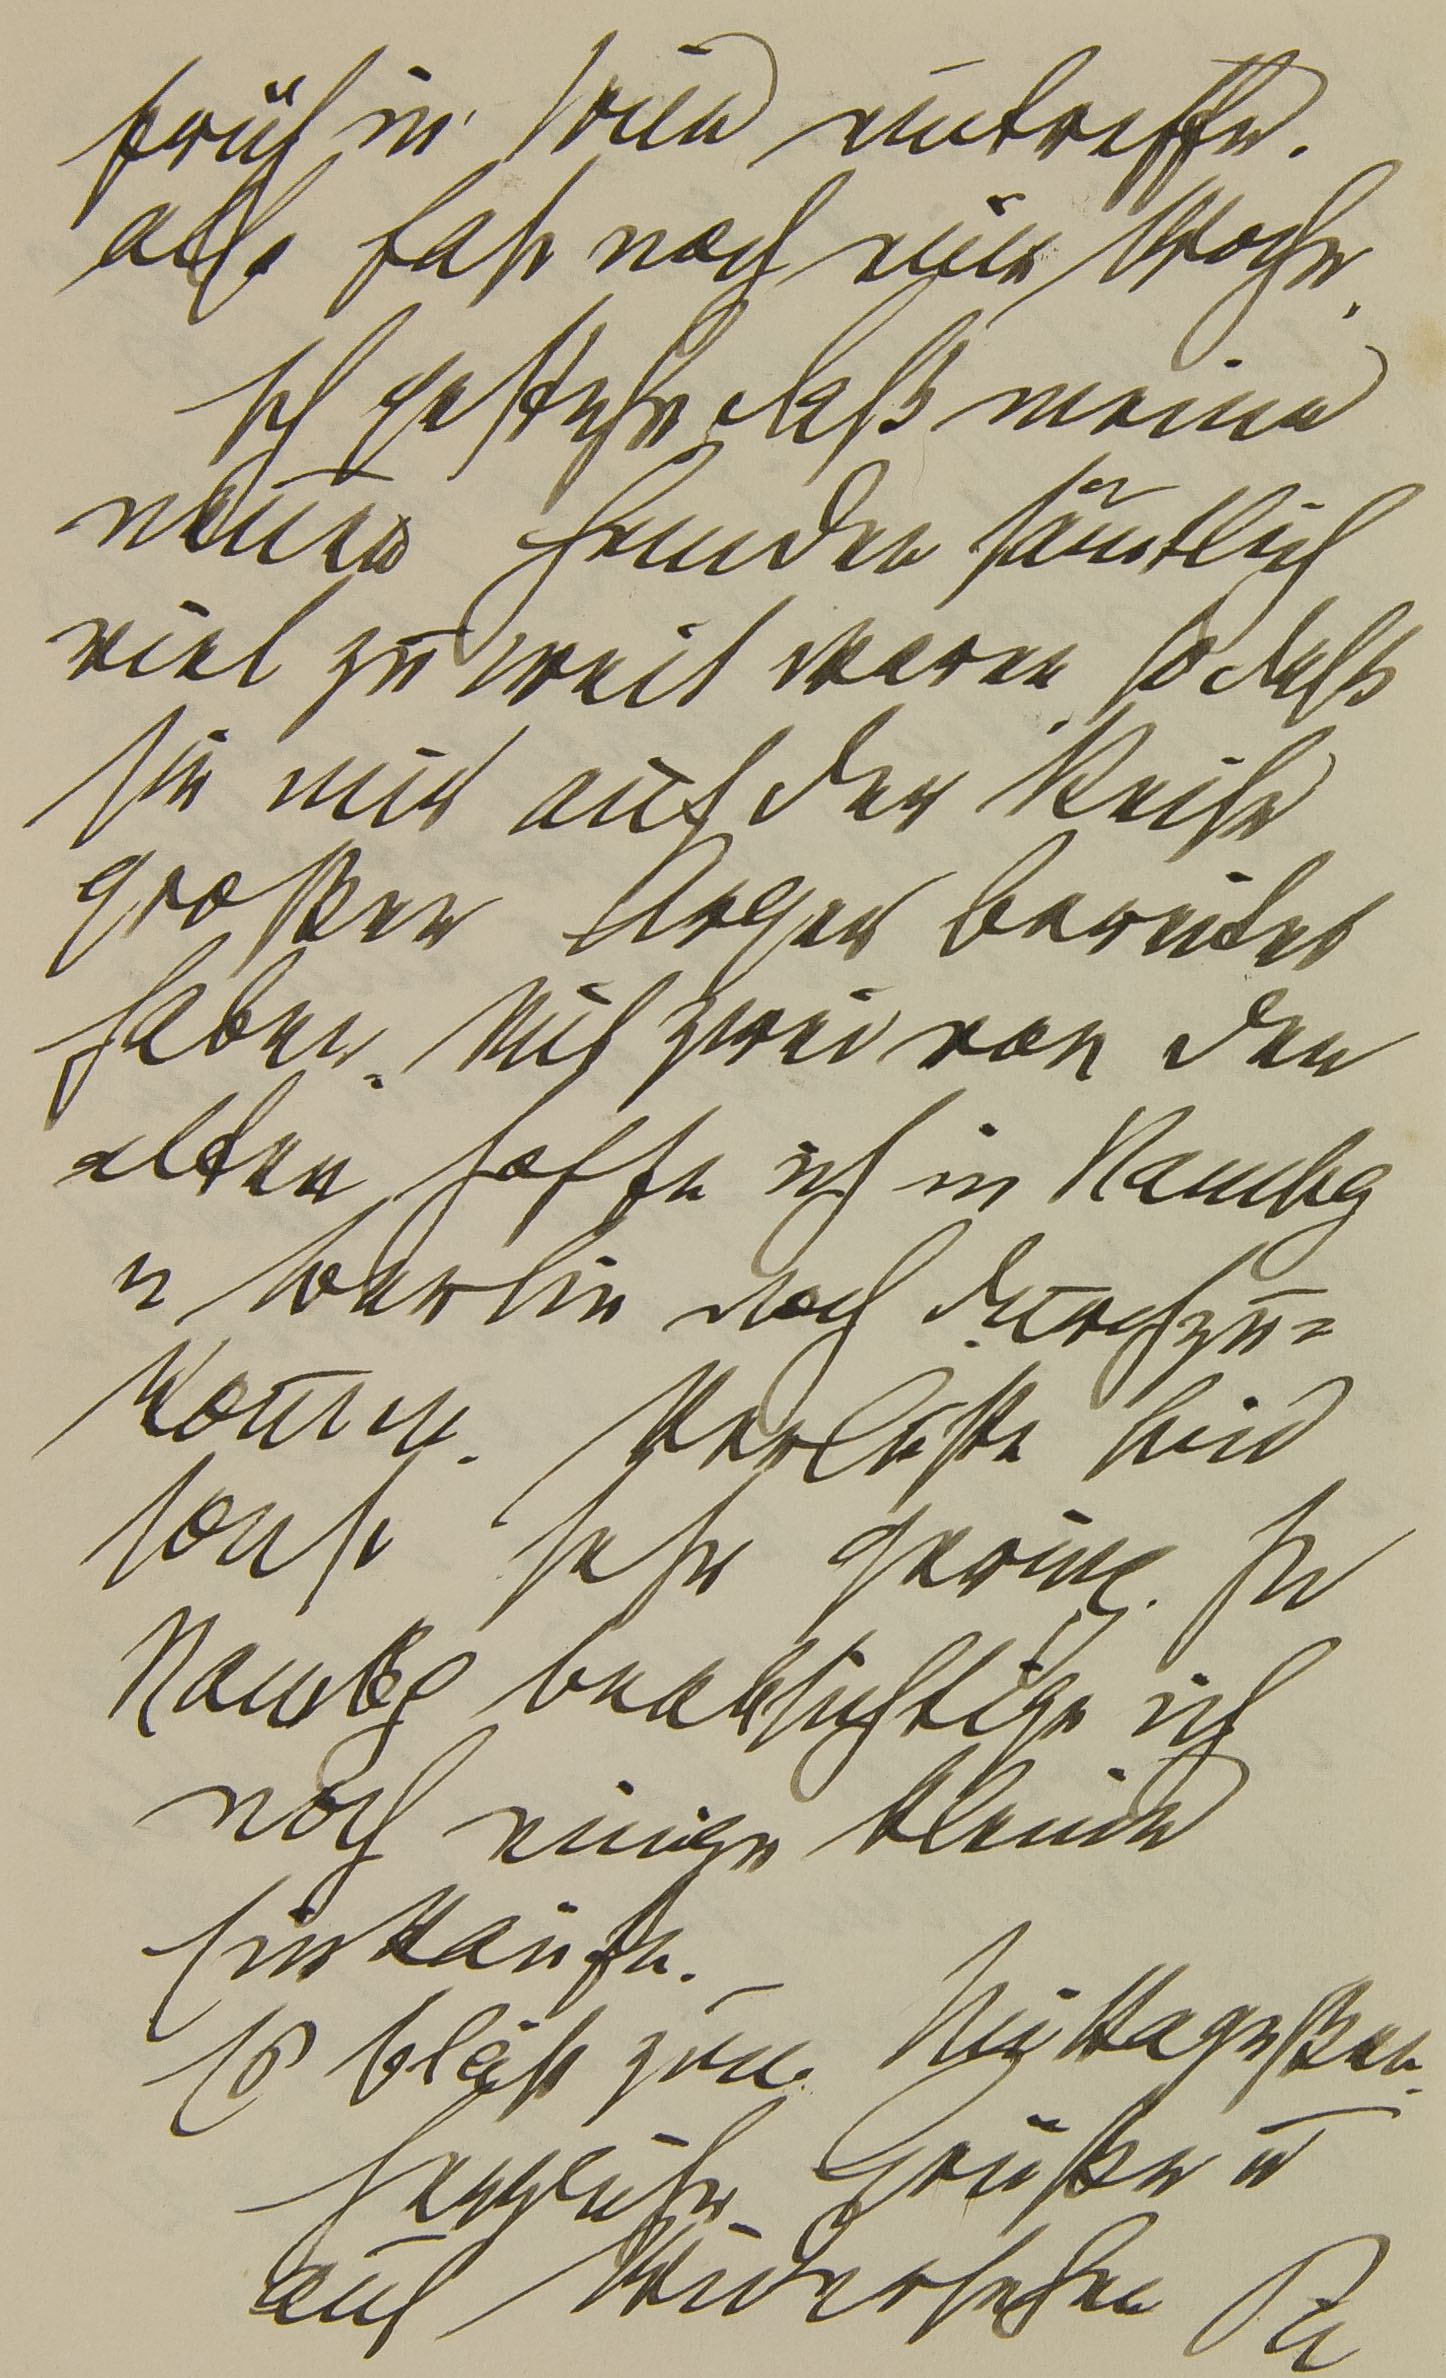 früh in Kiel eintreffe.
also fast noch eine Woche.
Ich gestehe daß meine
neuen Hemden sämtlich
viel zu weit waren so daß
sie mir auf der Reise
großen Ärger bereitet
haben. Mit zwei von den
alten hoffe ich in Hambg
u Berlin noch durchzu=
kom̄en. Verluste sind
sonst sehr gering. In
Hambg beabsichtige ich
noch einige kleine
Einkäufe. –
Es bläst zum Mittagessen.
Herzliche Grüße u
auf Wiedersehen